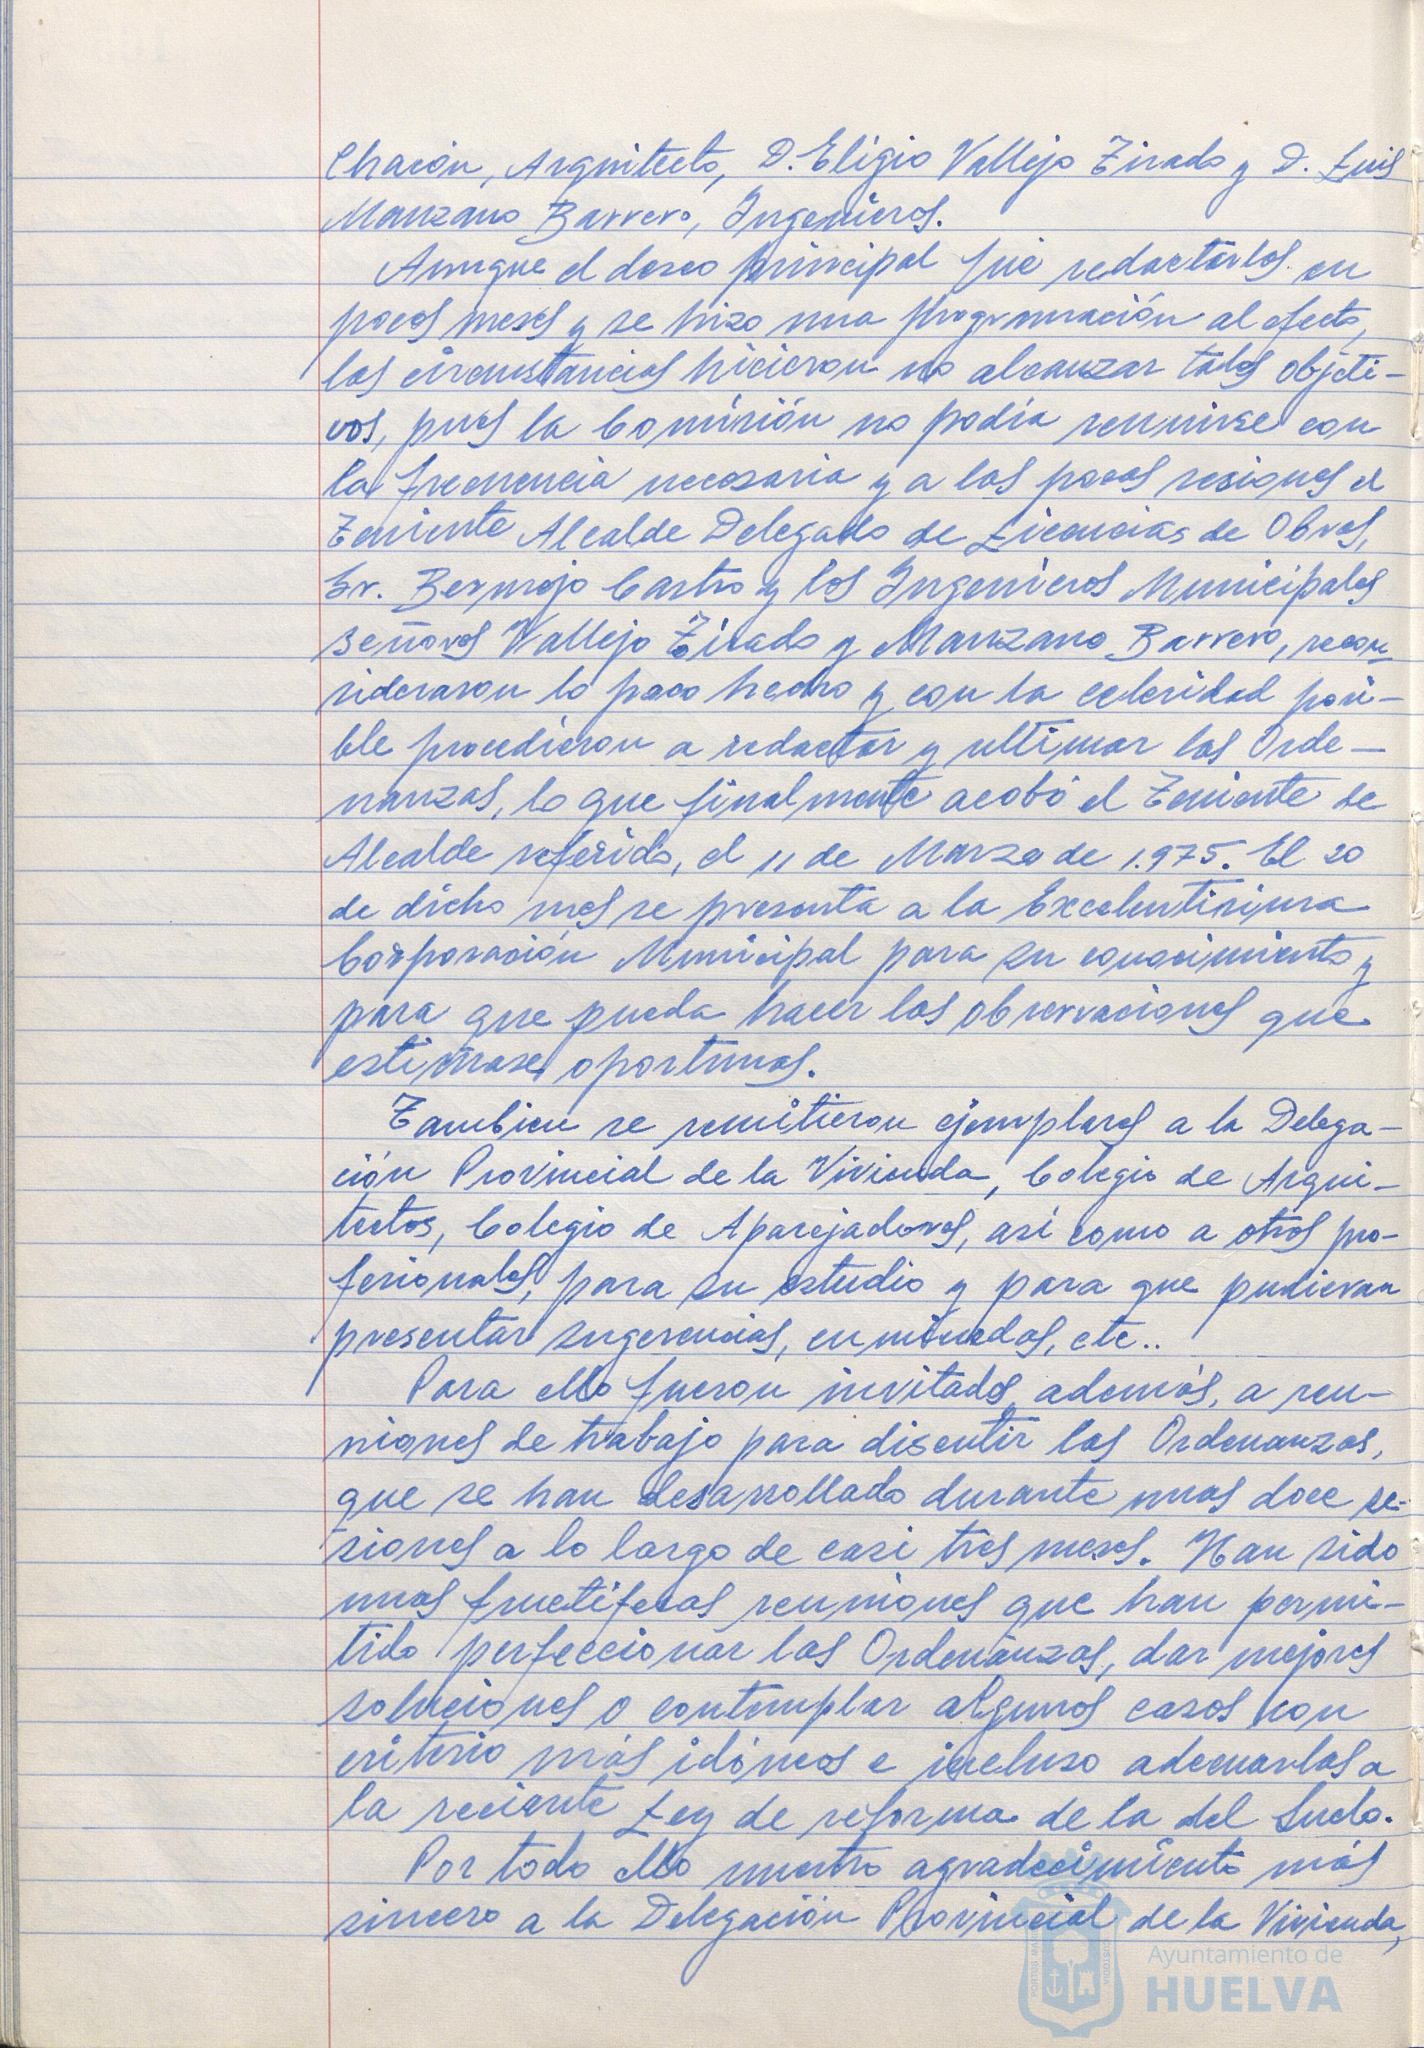 Chacón, Arquitecto, D. Eligio Vallejo Tirado y D. Luis
Manzano Barrero, Ingenieros.
Aunque el deseo principal fue redactarlos en
pocos meses y se hizo una programación al efecto,
las circunstancias hicieron no alcanzar tales objeti-
vos, pues la Comisión no podía reunirse con
la frecuencia necesaria y a las pocas sesiones el
Teniente Alcalde Delegado de Licencias de Obras,
Sr. Bermejo Castro y los Ingenieros Municipales
señores Vallejo Tirado y Manzano Barrero, recon-
sideraron lo poco hecho y con la celeridad posi-
ble procedieron a redactar y ultimar las Orde-
nanzas, lo que finalmente acabó el Teniente de
Alcalde referido, el 11 de Marzo de 1.975. El 20
de dicho mes se presenta a la Excelentísima
Corporación Municipal para su conocimiento y
para que pueda hacer las observaciones que
estimase oportunas.
Tambien se remitieron ejemplares a la Delega-
ción Provincial de la Vivienda, Colegio de Arqui-
tectos, Colegio de Aparejadores, así como a otros pro-
fesionales, para su estudio y para que pudieran
presentar sugerencias, enmiendas, etc..
Para ello fueron invitados, además, a reu-
niones de trabajo para discutir las Ordenanzas,
que se han desarrollado durante unas doce se-
siones a lo largo de casi tres meses. Han sido
unas fructíferas reuniones que han permi-
tido perfeccionar las Ordenanzas, dar mejores
soluciones o contemplar algunos casos con
criterio más idóneos e incluso adecuarlas a
la reciente Ley de reforma de la del Suelo.
Por todo ello nuestro agradecimiento más
sincero a la Delegación Provincial de la Vivienda,
Ayuntamiento de
HUELVA